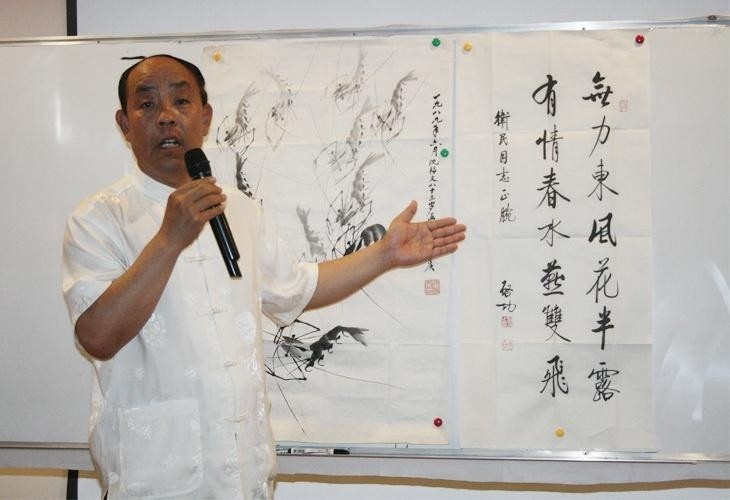 無力東風花半露
有情春水燕雙飛
衛民同志正腕
启功
一九八九年 月 八十三岁